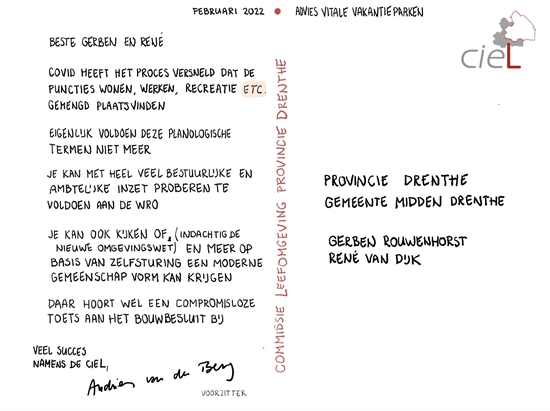 FEBRUARI 2022 • ADVIES VITALE VAKANTIEPARKEN
cieL
BESTE GERBEN EN RENÉ
COVID HEEFT HET PROCES VERSNELD DAT DE
FUNCTIES WONEN, WERKEN, RECREATIE ETC.
GEMENGD PLAATSVINDEN
EIGENLIJK VOLDOEN DEZE PLANOLOGISCHE
TERMEN NIET MEER
JE KAN MET HEEL VEEL BESTUURLIJKE EN
AMBTELIJKE INZET PROBEREN TE
VOLDOEN AAN DE WRO
JE KAN OOK KIJKEN OF, (INDACHTIG DE
NIEUWE OMGEVINGSWET) EN MEER OP
BASIS VAN ZELFSTURING EEN MODERNE
GEMEENSCHAP VORM KAN KRIJGEN
DAAR HOORT WEL EEN COMPROMISLOZE
TOETS AAN HET BOUWBESLUIT BIJ
VEEL SUCCES
NAMENS DE CIEL,
Andries van den Berg
VOORZITTER
COMMISSIE LEEFOMGEVING PROVINCIE DRENTHE
PROVINCIE DRENTHE
GEMEENTE MIDDEN DRENTHE
GERBEN ROUWENHORST
RENÉ VAN DIJK